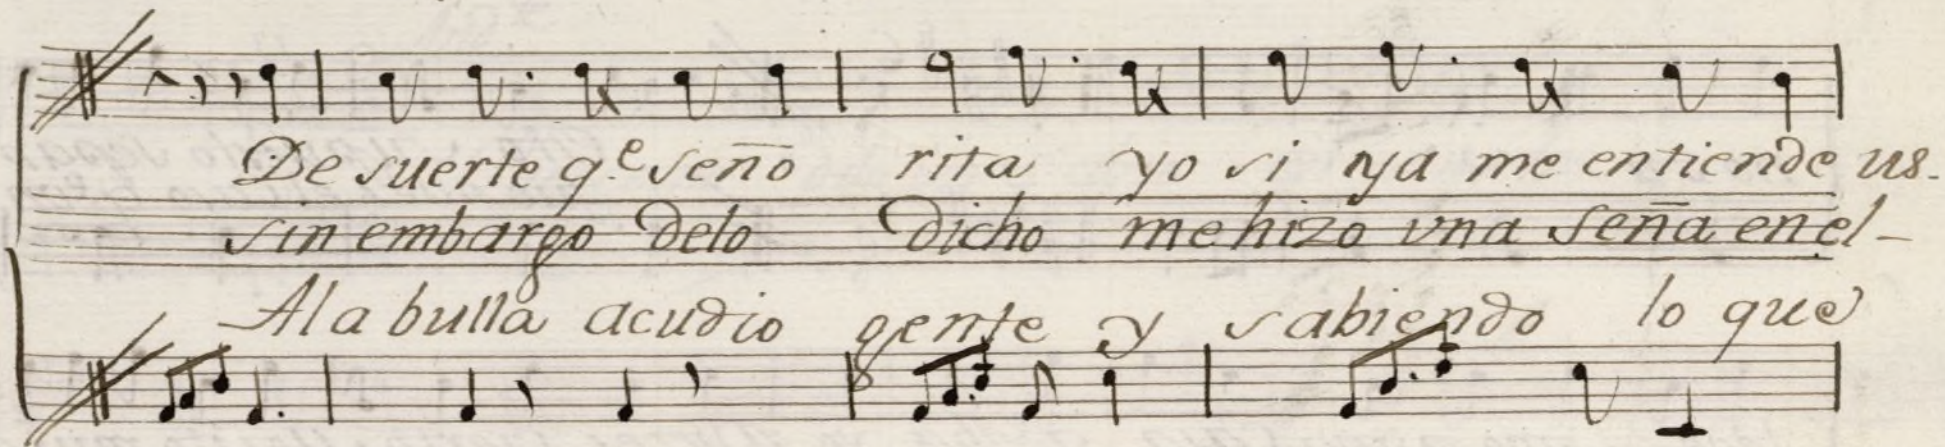 De suerte q.e señorita yo si ya me entiende us-
sin embargo delo dicho mehizo vna seña enel-
Ala bulla acudio gente y sabiendo lo que